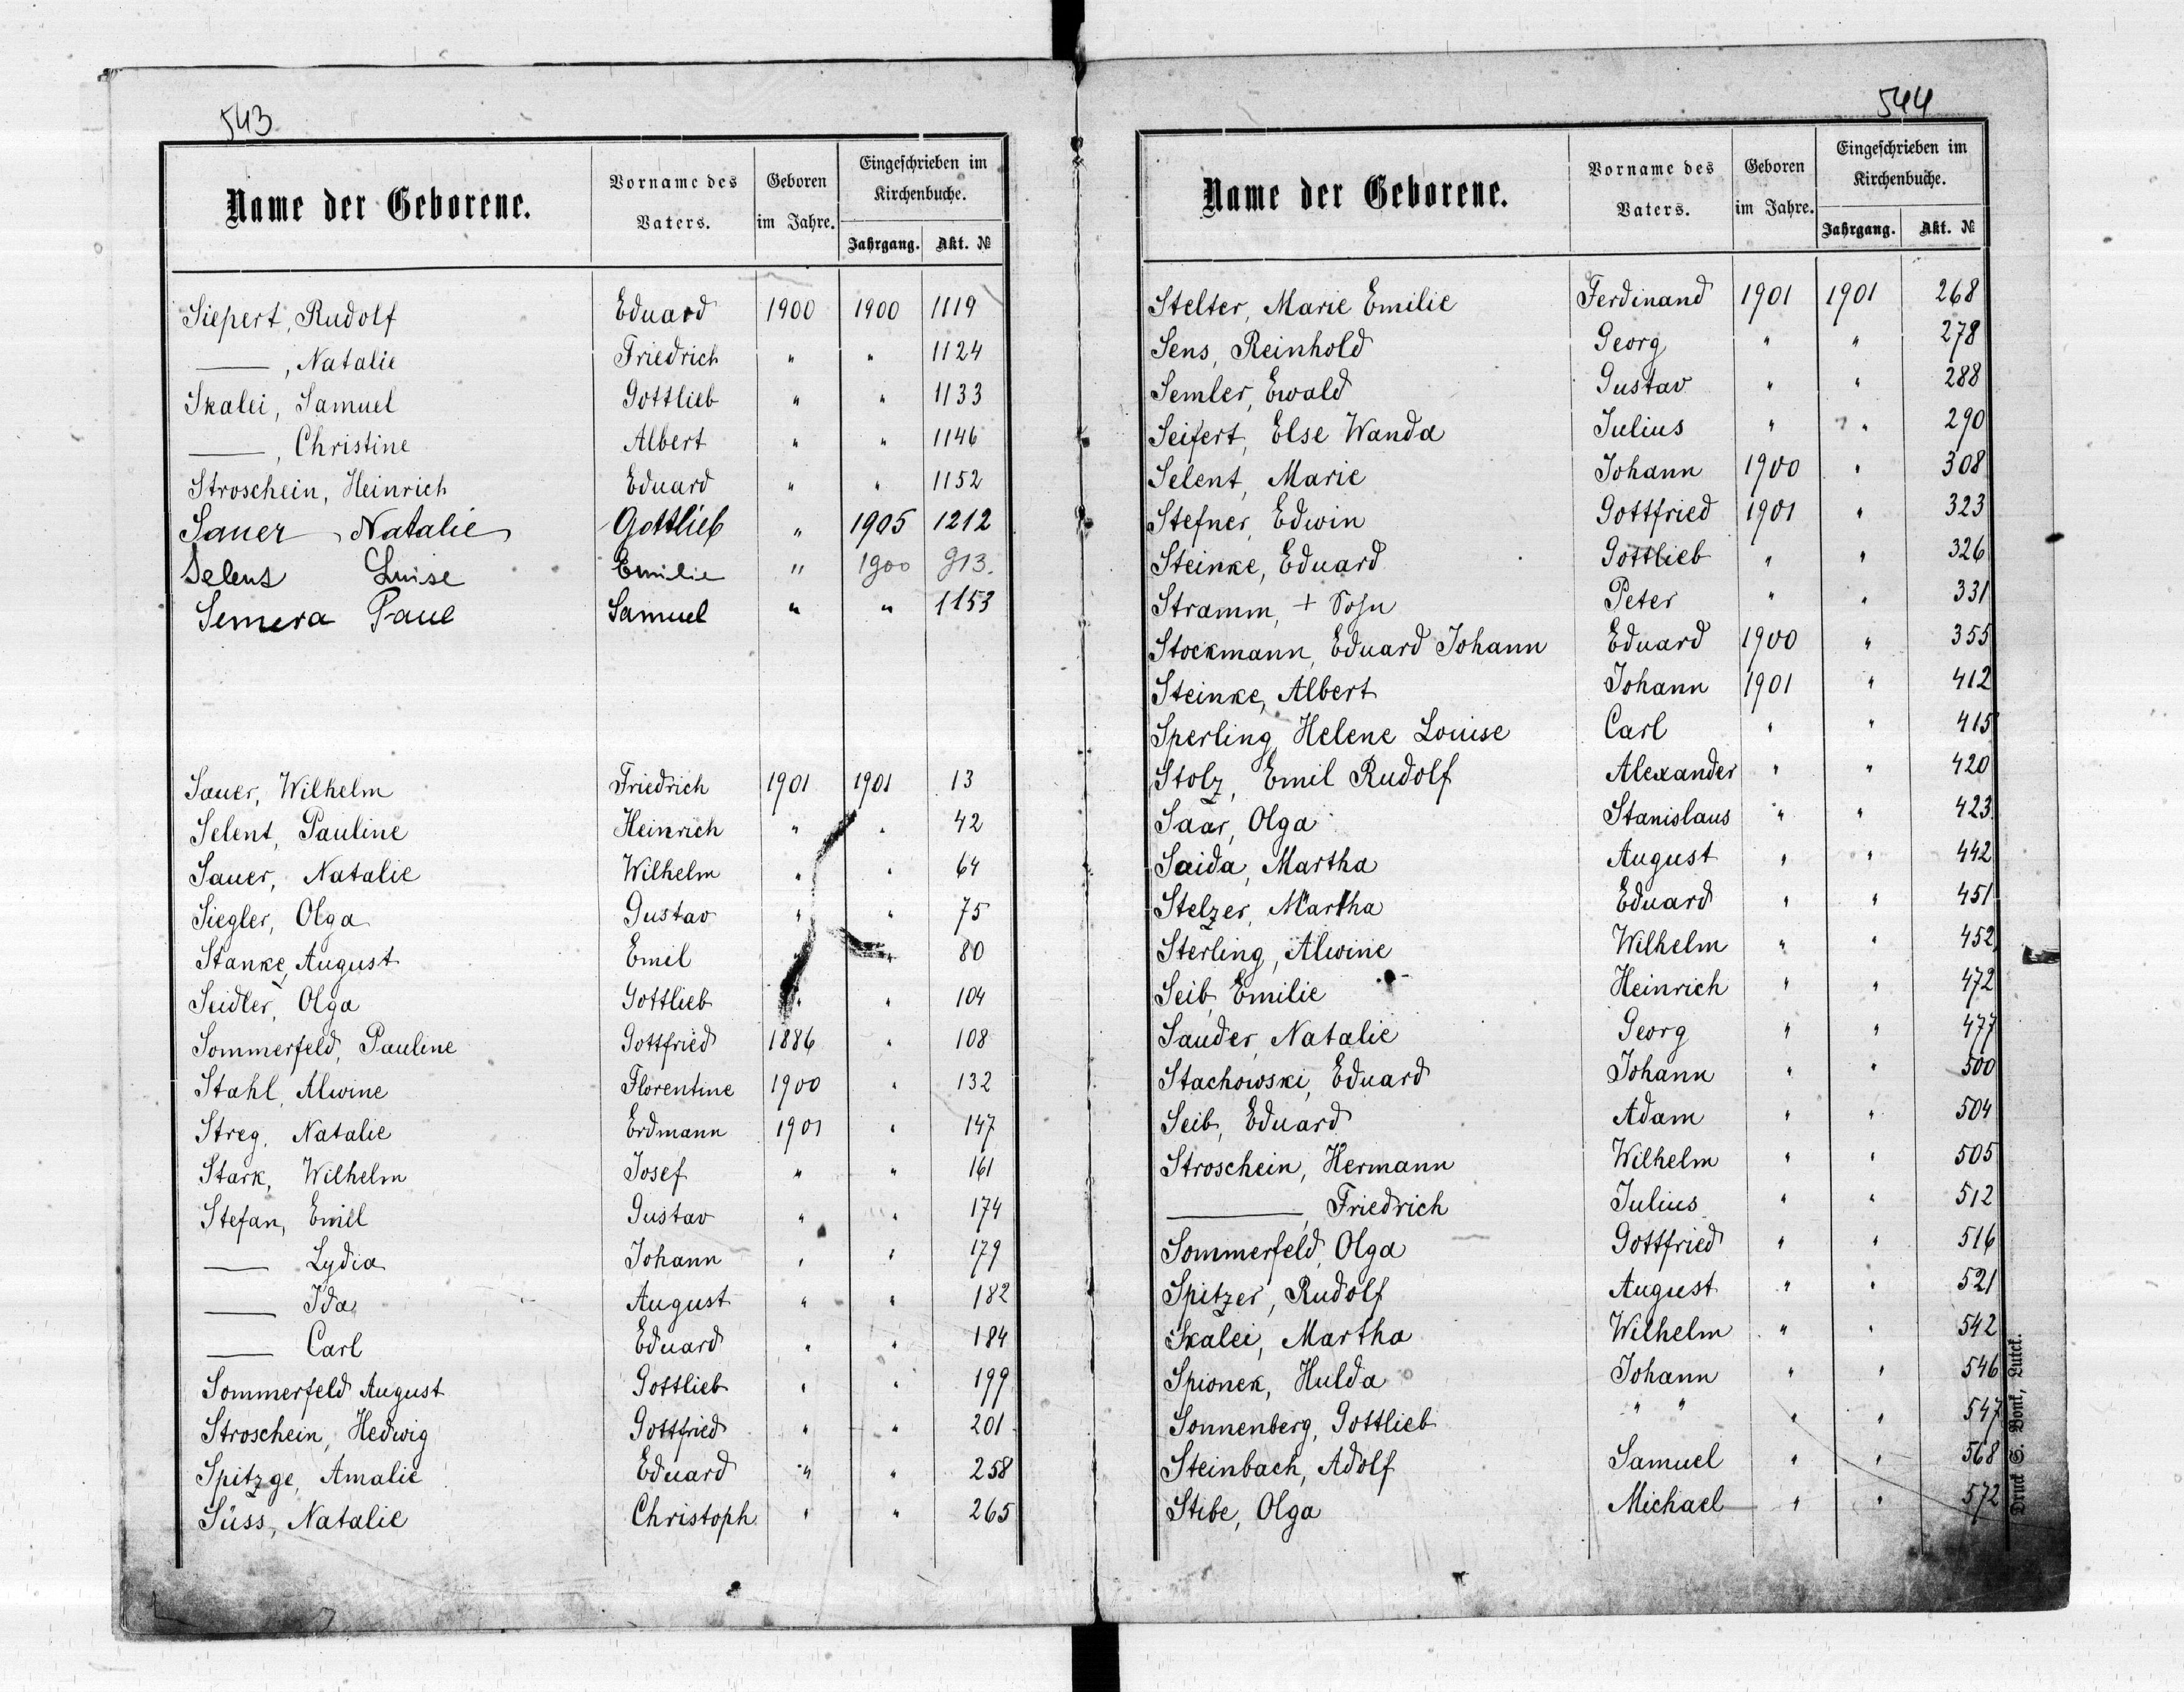 543
Name der Geborene. Vorname des Vaters. Geboren im Jahre. Eingeschrieben im Kirchenbuche. Jahrgang. Akt. №
Siepert, Rudolf Eduard 1900 1900 1119
—, Natalie Friedrich " " 1124
Skalei, Samuel Gottlieb " " 1133
—, Christine Albert " " 1146
Stroschein, Heinrich Eduard " " 1152
Sauer, Natalie Gottlieb " 1905 1212
Selent Luise Emilie " 1900 913.
Semera Paul Samuel " " 1153
Sauer, Wilhelm Friedrich 1901 1901 13
Selent, Pauline Heinrich " " 42
Sauer, Natalie Wilhelm " " 64
Siegler, Olga Gustav " " 75
Stanke, August Emil " " 80
Seidler, Olga Gottlieb " " 104
Sommerfeld, Pauline Gottfried 1886 " 108
Stahl, Alwine Florentine 1900 " 132
Streg, Natalie Erdmann 1901 " 147
Stark, Wilhelm Josef " " 161
Stefan, Emil Gustav " " 174
— Lydia Johann " " 179
— Ida August " " 182
— Carl Eduard " " 184
Sommerfeld August Gottlieb " " 199
Stroschein, Hedwig Gottfried " " 201
Spitzge, Amalie Eduard " " 258
Süss, Natalie Christoph " " 265
544
Name der Geborene. Vorname des Vaters. Geboren im Jahre. Eingeschrieben im Kirchenbuche. Jahrgang. Akt. №
Stelter, Marie Emilie Ferdinand 1901 1901 268
Sens, Reinhold Georg " " 278
Semler, Ewald Gustav " " 288
Seifert, Else Wanda Julius " " 290
Selent, Marie Johann 1900 " 308
Stefner, Edwin Gottfried 1901 " 323
Steinke, Eduard Gottlieb " " 326
Stramm, + Sohn Peter " " 331
Stockmann, Eduard Johann Eduard 1900 " 355
Steinke, Albert Johann 1901 " 412
Sperling, Helene Louise Carl " " 415
Stolz, Emil Rudolf Alexander " " 420
Saar, Olga Stanislaus " " 423
Saida, Martha August " " 442
Stelzer, Martha Eduard " " 451
Sterling, Alwine Wilhelm " " 452
Seib, Emilie Heinrich " " 472
Sauder, Natalie Georg " " 477
Stachowski, Eduard Johann " " 500
Seib, Eduard Adam " " 504
Stroschein, Hermann Wilhelm " " 505
—, Friedrich Julius " " 512
Sommerfeld, Olga Gottfried " " 516
Spitzer, Rudolf August " " 521
Skalei, Martha Wilhelm " " 542
Spionek, Hulda Johann " " 546
Sonnenberg, Gottlieb " " " " 547
Steinbach, Adolf Samuel " " 568
Stibe, Olga Michael " " 572
Druck S. Bonk, Luck.